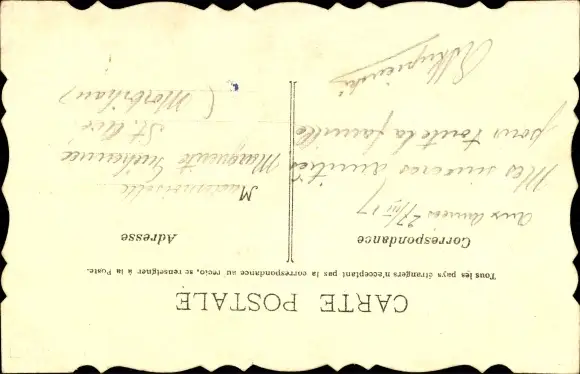 CARTE POSTALE
Tous les pays étrangers n'acceptant pas la correspondance au recto, se renseigner à la Poste.
Correspondance
Aux armées 27/III 17
Mes sincères amitiés
pour toute la famille
Adresse
Mademoiselle
Marguerite
St. Avé
(Morbihan)